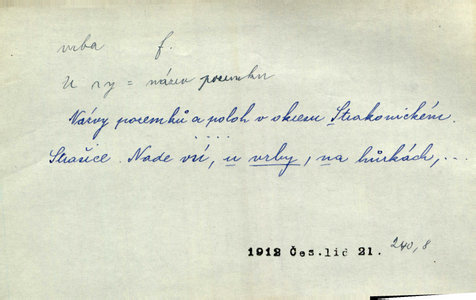 vrba f.
U vy = název pozemku
Názvy pozemků a poloh v okresu Strakonickém.
. . . .
Strašice. Nade vsí, u vrby, na hůrkách, ...
1912 Čes.lid 21. 240,8